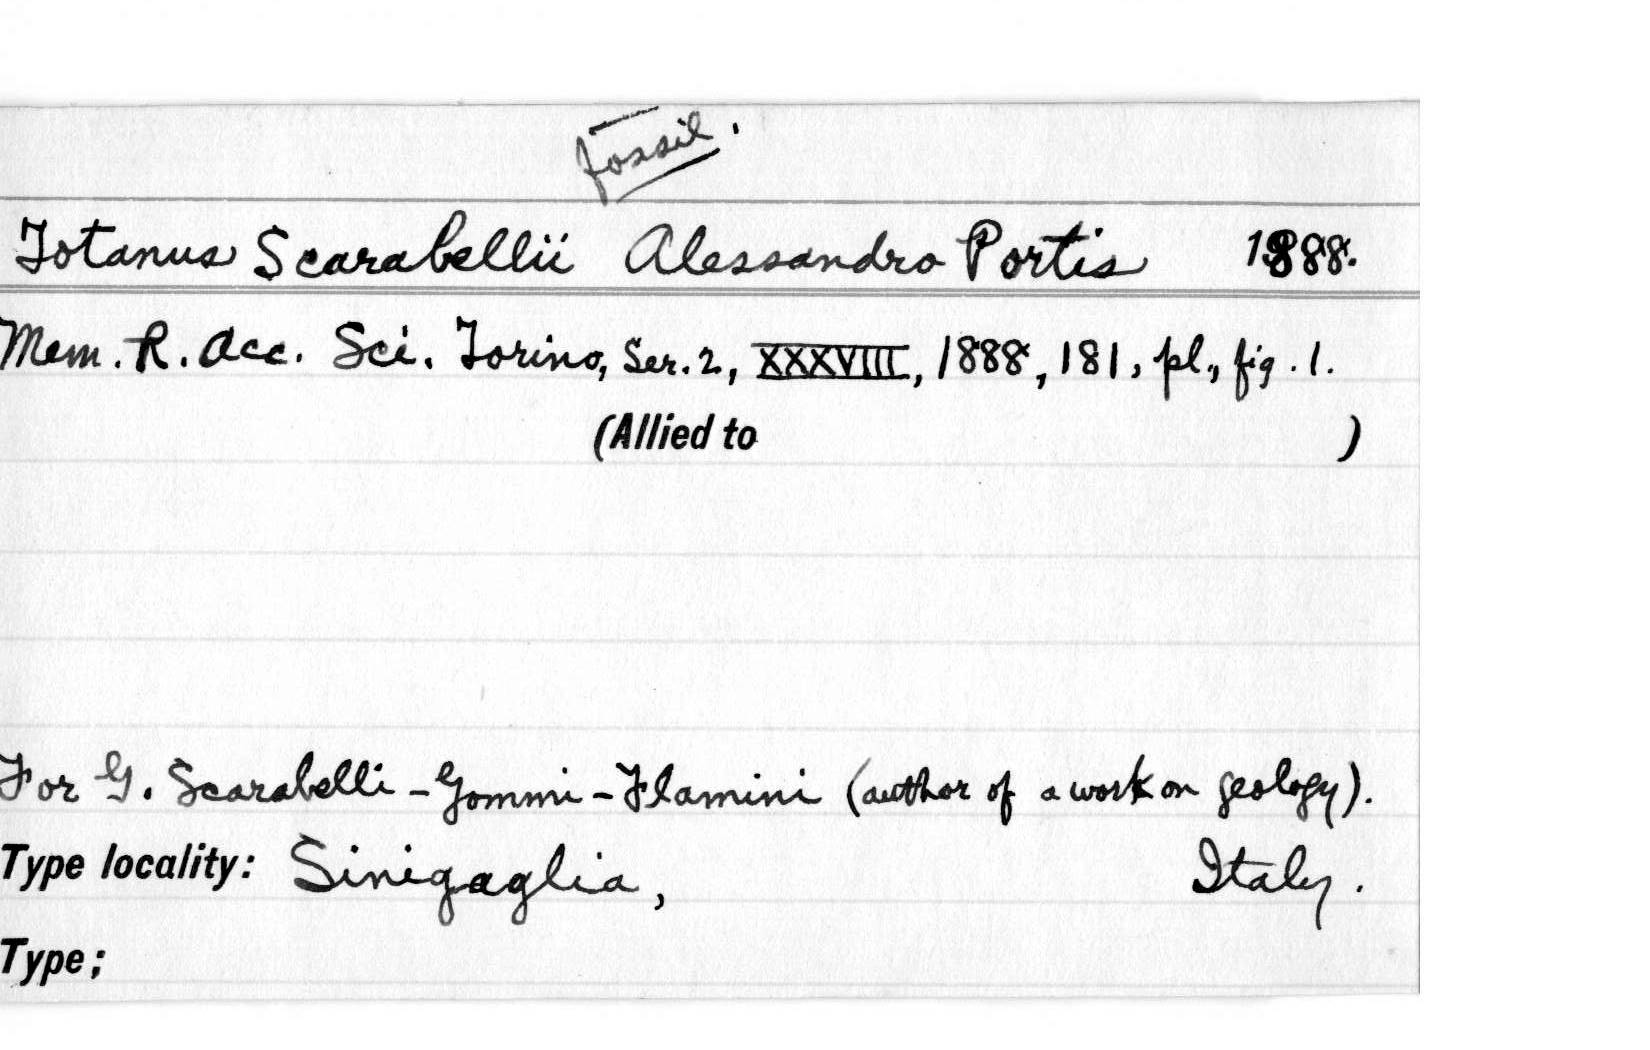 Fossil.
Totanus Scarabellii Alessandro Portis 1888.
Mem. R. Acc. Sci. Torino, Ser. 2, XXXVIII, 1888, 181, pl., fig. 1.
(Allied to )
For G. Scarabelli-Gommi-Flamini (author of a work on geology).
Type locality: Sinigaglia, Italy.
Type;